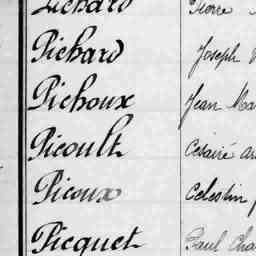 Pichard Pierre
Pichard Joseph
Pichoux Jean Ma
Picoult Césaire
Picoux Célestin
Picquet Paul Cha